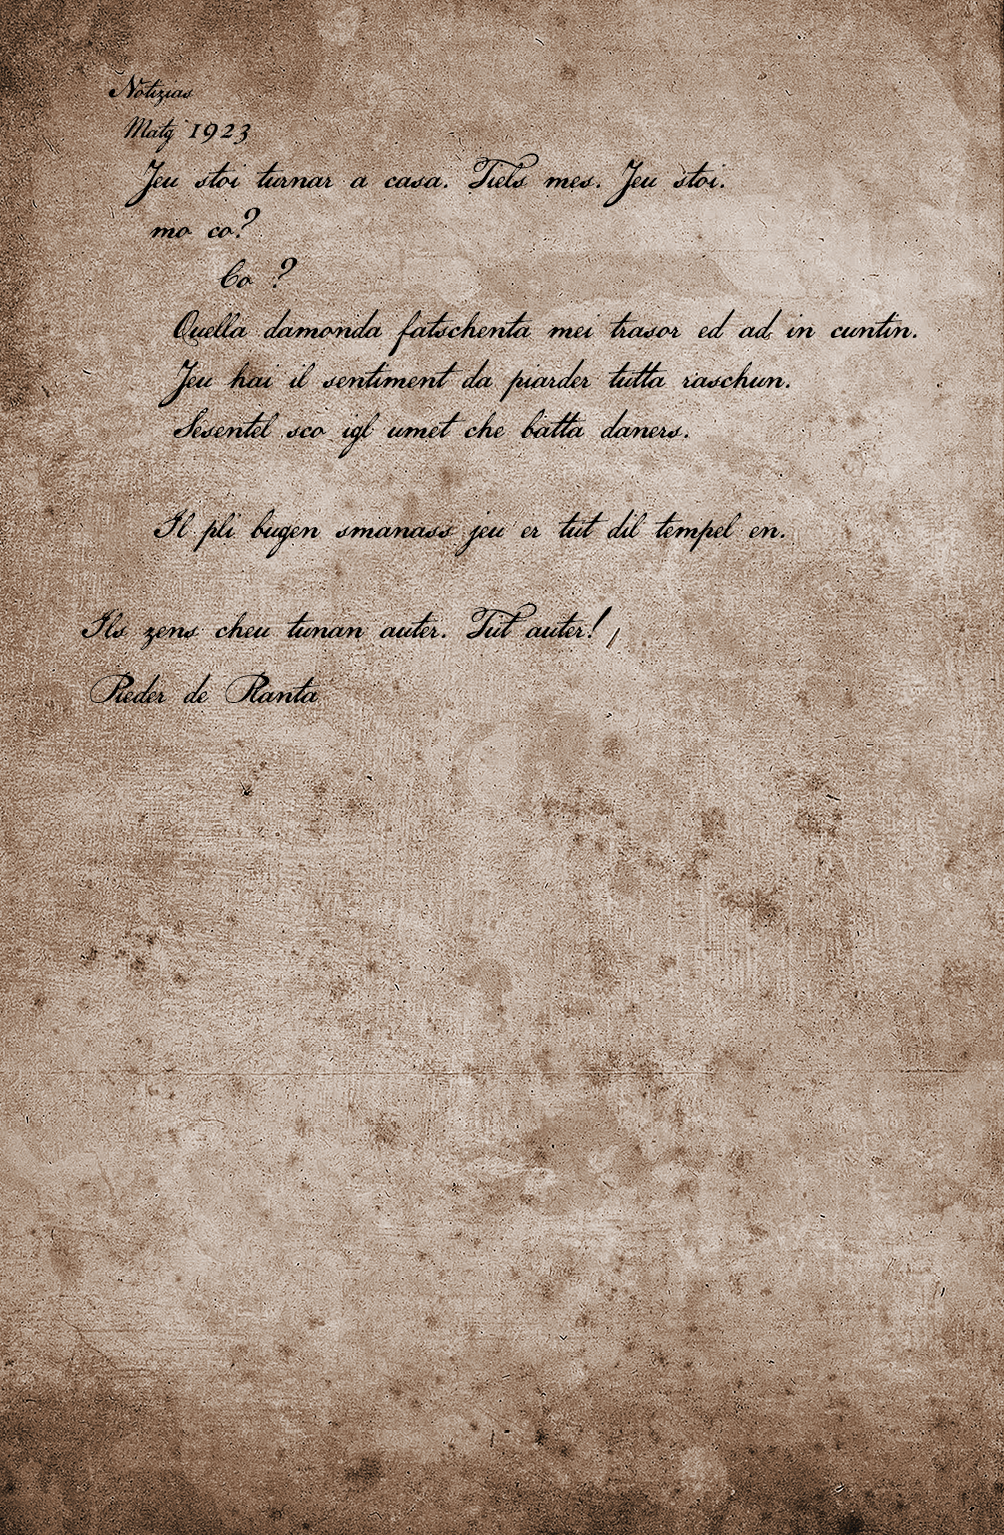 Notizias
Matg 1923
Jeu stoi turnar a casa. Tiels mes. Jeu stoi.
mo co?
Co ?
Quella damonda fatschenta mei trasor ed ad in cuntin.
Jeu hai il sentiment da piarder tutta raschun.
Sesentel sco igl umet che batta daners.
Il pli bugen smanass jeu er tut dil tempel en.
Ils zens cheu tunan auter. Tut auter!
Rieder de Ranta